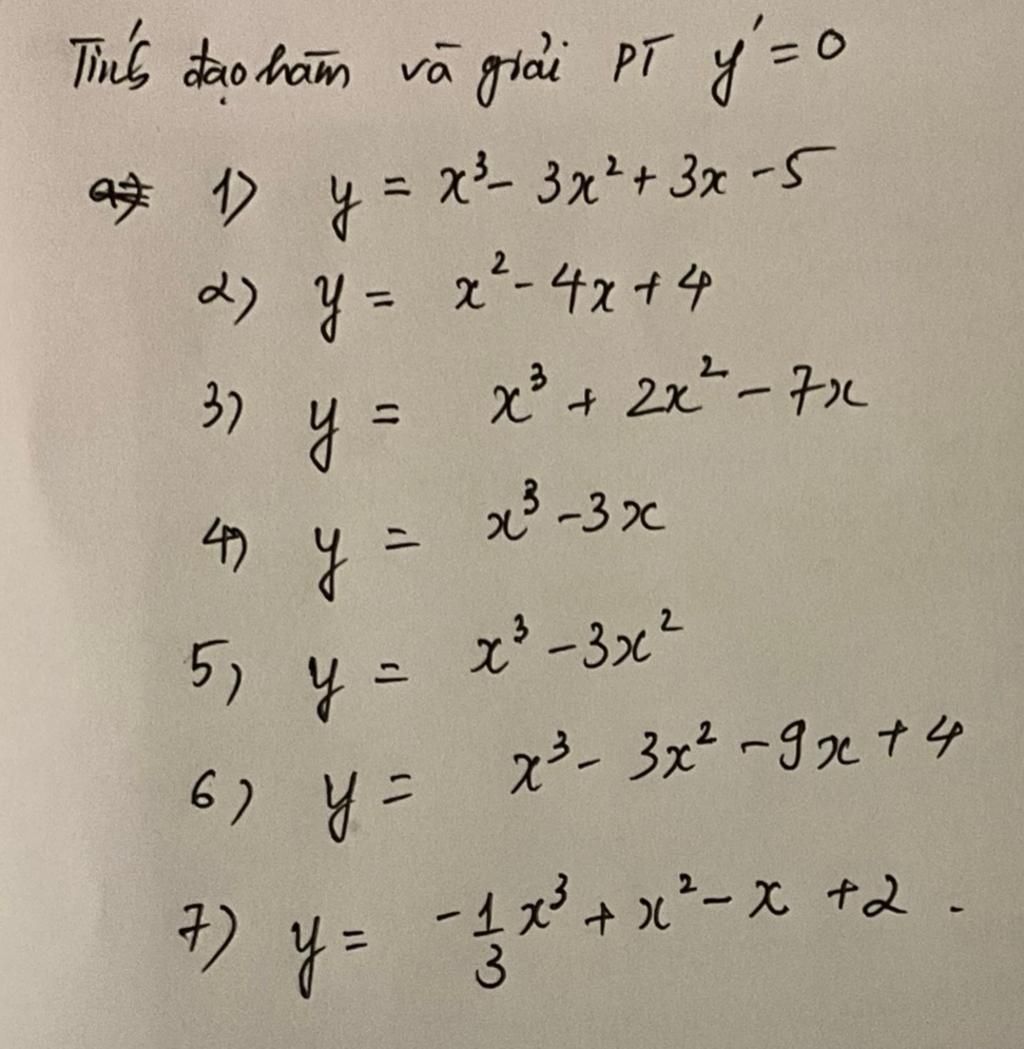 Tính đạo hàm và giải PT y' = 0
1) y = x³ - 3x² + 3x - 5
2) y = x² - 4x + 4
3) y = x³ + 2x² - 7x
4) y = x³ - 3x
5) y = x³ - 3x²
6) y = x³ - 3x² - 9x + 4
7) y = -1/3 x³ + x² - x + 2.